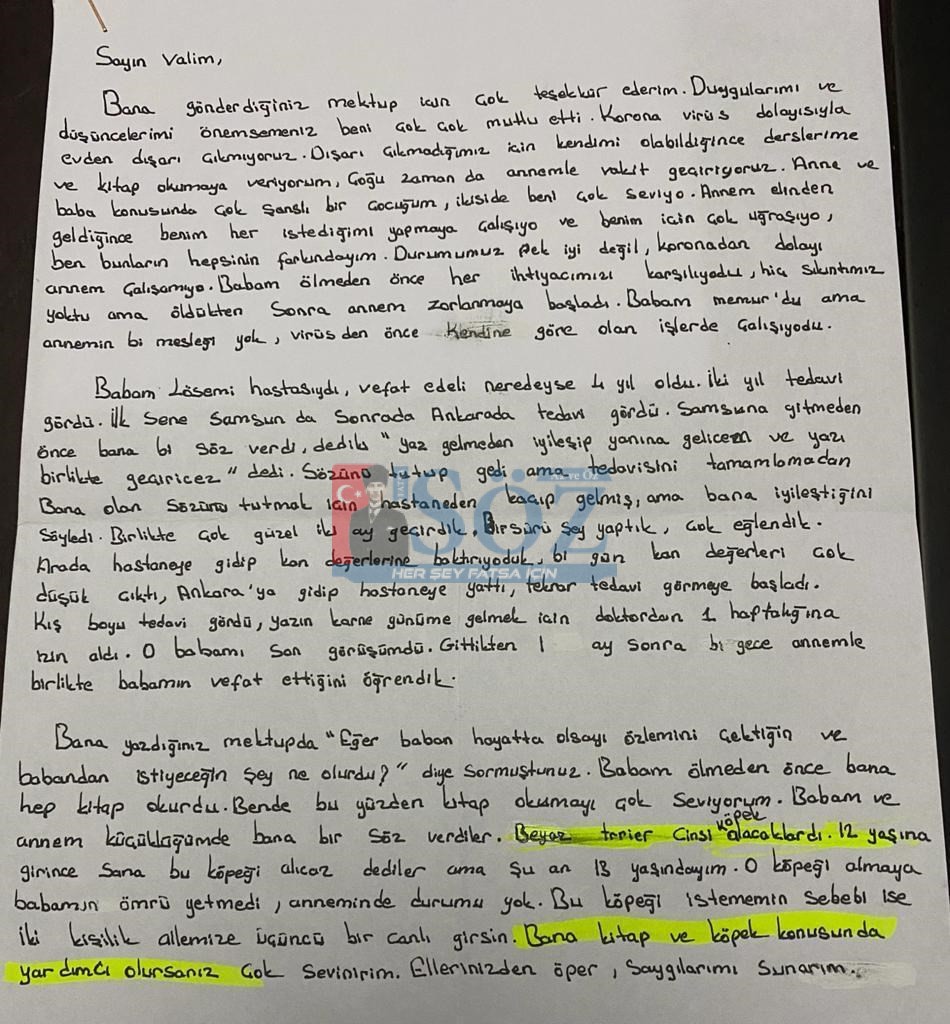 Sayın Valim,
Bana gönderdiğiniz mektup için çok teşekkür ederim. Duygularımı ve
düşüncelerimi önemsemeniz beni çok çok mutlu etti. Korona virüs dolayısıyla
evden dışarı çıkmıyoruz. Dışarı çıkmadığımız için kendimi olabildiğince derslerime
ve kitap okumaya veriyorum, Çoğu zaman da annemle vakit geçiriyoruz. Anne ve
baba konusunda çok şanslı bir çocuğum, ikiside beni çok seviyo. Annem elinden
geldiğince benim her istediğimi yapmaya çalışıyo ve benim için çok uğraşıyo,
ben bunların hepsinin farkındayım. Durumumuz pek iyi değil, koronadan dolayı
annem çalışamıyo. Babam ölmeden önce her ihtiyacımızı karşılıyodu, hiç sıkıntımız
yoktu ama öldükten sonra annem zorlanmaya başladı. Babam memur'du ama
annemin bi mesleği yok, virüsden önce kendine göre olan işlerde çalışıyodu.
Babam Lösemi hastasıydı, vefat edeli neredeyse 4 yıl oldu. İki yıl tedavi
gördü. İlk sene Samsun da sonrada Ankarada tedavi gördü. Samsuna gitmeden
önce bana bi söz verdi, dediki "yaz gelmeden iyileşip yanına gelicem ve yazı
birlikte geçiricez" dedi. Sözünü tutup gedi ama tedavisini tamamlamadan
Bana olan sözünü tutmak için hastaneden kaçıp gelmiş, ama bana iyileştiğini
söyledi. Birlikte çok güzel iki ay geçirdik, Bir sürü şey yaptık, çok eğlendik.
Arada hastaneye gidip kan değerlerine baktırıyoduk, bi gün kan değerleri çok
düşük çıktı, Ankara'ya gidip hastaneye yattı, tekrar tedavi görmeye başladı.
Kış boyu tedavi gördü, yazın karne günüme gelmek için doktordan 1 haptalığına
izin aldı. O babamı son görüşümdü. Gittikten 1 ay sonra bi gece annemle
birlikte babamın vefat ettiğini öğrendik.
Bana yazdığınız mektupda "Eğer baban hayatta olsayı özlemini çektiğin ve
babandan istiyeceğin şey ne olurdu?" diye sormuştunuz. Babam ölmeden önce bana
hep kitap okurdu. Bende bu yüzden kitap okumayı çok seviyorum. Babam ve
annem küçüklüğümde bana bir söz verdiler. Beyaz terrier cinsi köpek alacaklardı. 12 yaşına
girince sana bu köpeği alıcaz dediler ama şu an 13 yaşındayım. O köpeği almaya
babamın ömrü yetmedi, anneminde durumu yok. Bu köpeği istememin sebebi ise
iki kişilik ailemize üçüncü bir canlı girsin. Bana kitap ve köpek konusunda
yardımcı olursanız çok sevinirim. Ellerinizden öper, saygılarımı sunarım.
SÖZ
HER ŞEY FATSA İÇİN